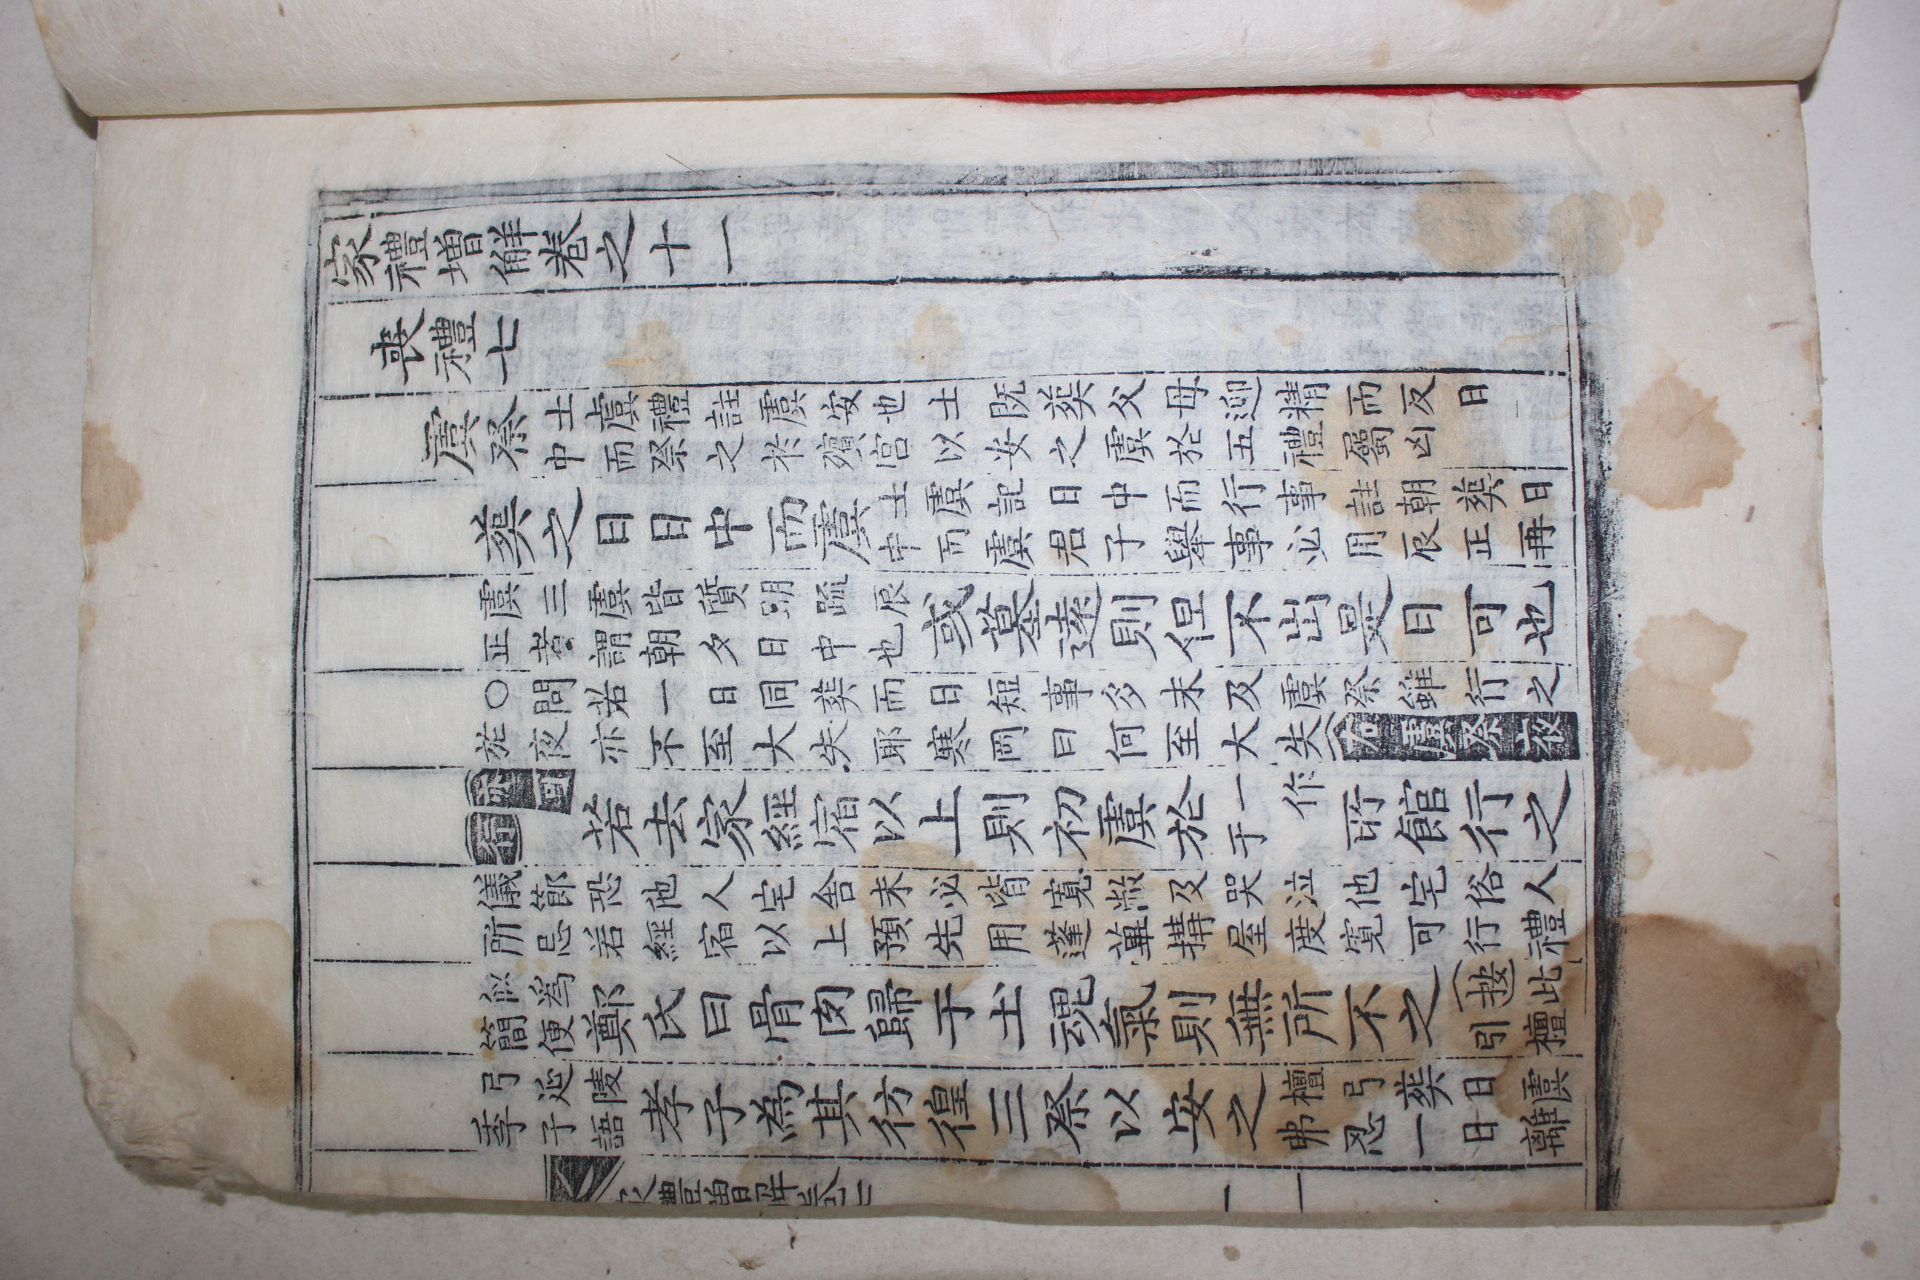 家禮增解卷之十一
喪禮七
虞祭
士虞禮註虞安也士既葬父母迎精而反日
中而祭之於殯宮以安之虞於五禮屬凶
葬之日日中而虞
士虞記日中而行事註朝葬日
中而虞君子舉事必用辰正再
虞三虞皆質明疏辰
正者謂朝夕日中也
或墓遠則但不出是日可也
○問若一日同葬而日短事多未及虞祭雖行之
於夜亦不至大失耶寒岡曰何至大失右虞祭夜
亦可
行
若去家經宿以上則初虞於
一作
于
所館行之
儀節恐他人宅舍未必皆寬敞及哭泣他宅俗人
所忌若經宿以上預先用蓬蓽搆屋度寬可行禮
似為
簡便
鄭氏曰骨肉歸于土魂氣則無所不之
按此
引檀
弓延陵
季子語
孝子為其彷徨三祭以安之
檀弓葬日虞
弗忍一日離
家禮增解卷十
一